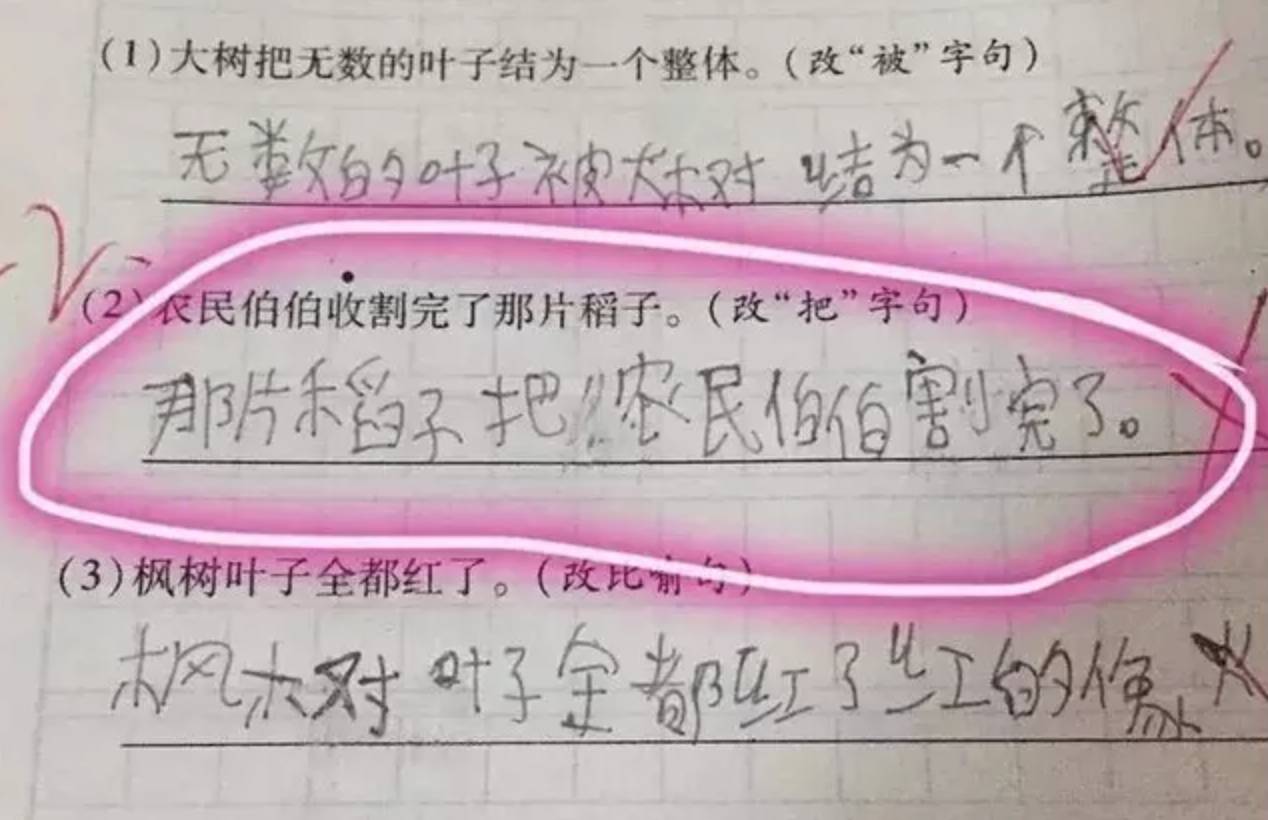 (1)大树把无数的叶子结为一个整体。(改“被”字句)
无数的叶子被大树结为一个整体。
(2)农民伯伯收割完了那片稻子。(改“把”字句)
那片稻子把农民伯伯割完了。
(3)枫树叶子全都红了。(改比喻句)
枫树叶子全都红了红的像